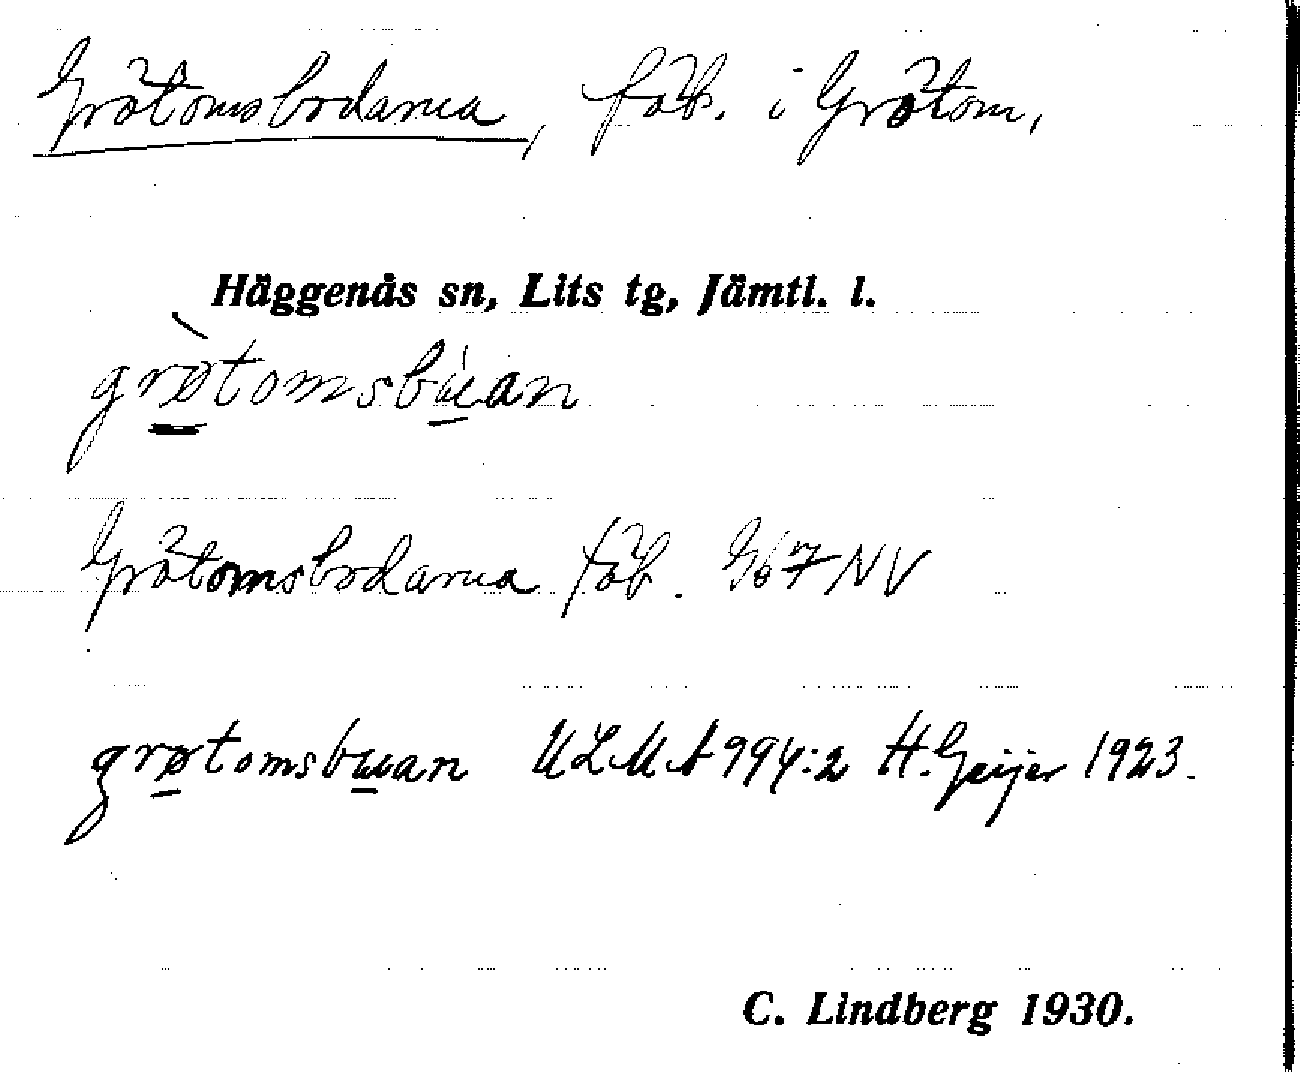 Grötomsbodarna, fäb. i Grötom,
Häggenås sn, Lits tg, Jämtl. l.
grøtomsbùan
Grötomsbodarna fäb. Gb 7 NV
grøtomsbuan ULMA 994:2 H. Geijer 1923.
C. Lindberg 1930.